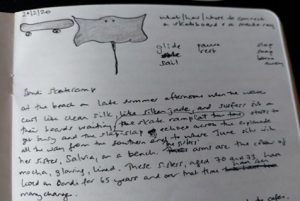 20/2/20
what/how/where to connect
a skateboard & a manta-ray
glide pause
sail rest
Bondi skateramp
at the beach on late summer afternoons when the waves
curl like clean silk, like silken jade, and surfers sit on
their boards waiting, the skate ramp
gets busy and the slap slap echoes across the esplanade
all the way from the southern end to where June sits with
her sister, Salvia, on a bench. arms are the colour of
mocha, glowing, lined. These sisters, aged 70 and 73, have
lived in Bondi for 65 years and over that time
many change.